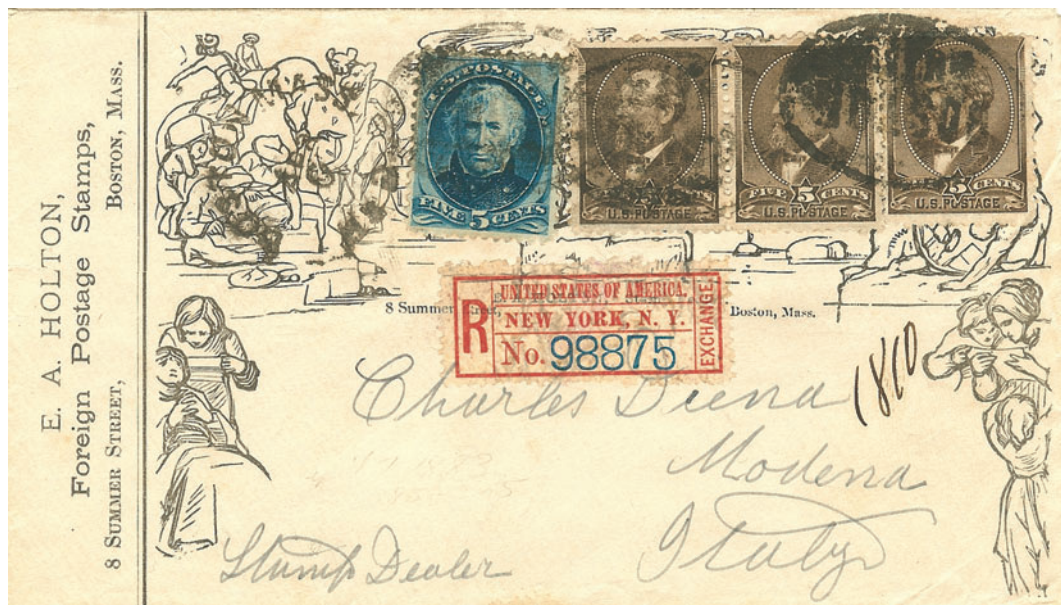 E. A. HOLTON,
Foreign Postage Stamps,
8 SUMMER STREET, BOSTON, MASS.
U.S. POSTAGE
FIVE 5 CENTS
FIVE 5 CENTS
U.S. POSTAGE
FIVE 5 CENTS
U.S. POSTAGE
FIVE 5 CENTS
U.S. POSTAGE
8 Summer Street, Boston, Mass.
R
UNITED STATES OF AMERICA.
NEW YORK, N. Y.
No. 98875
EXCHANGE
1810
Charles Diena
Modena
Italy
Stamp Dealer